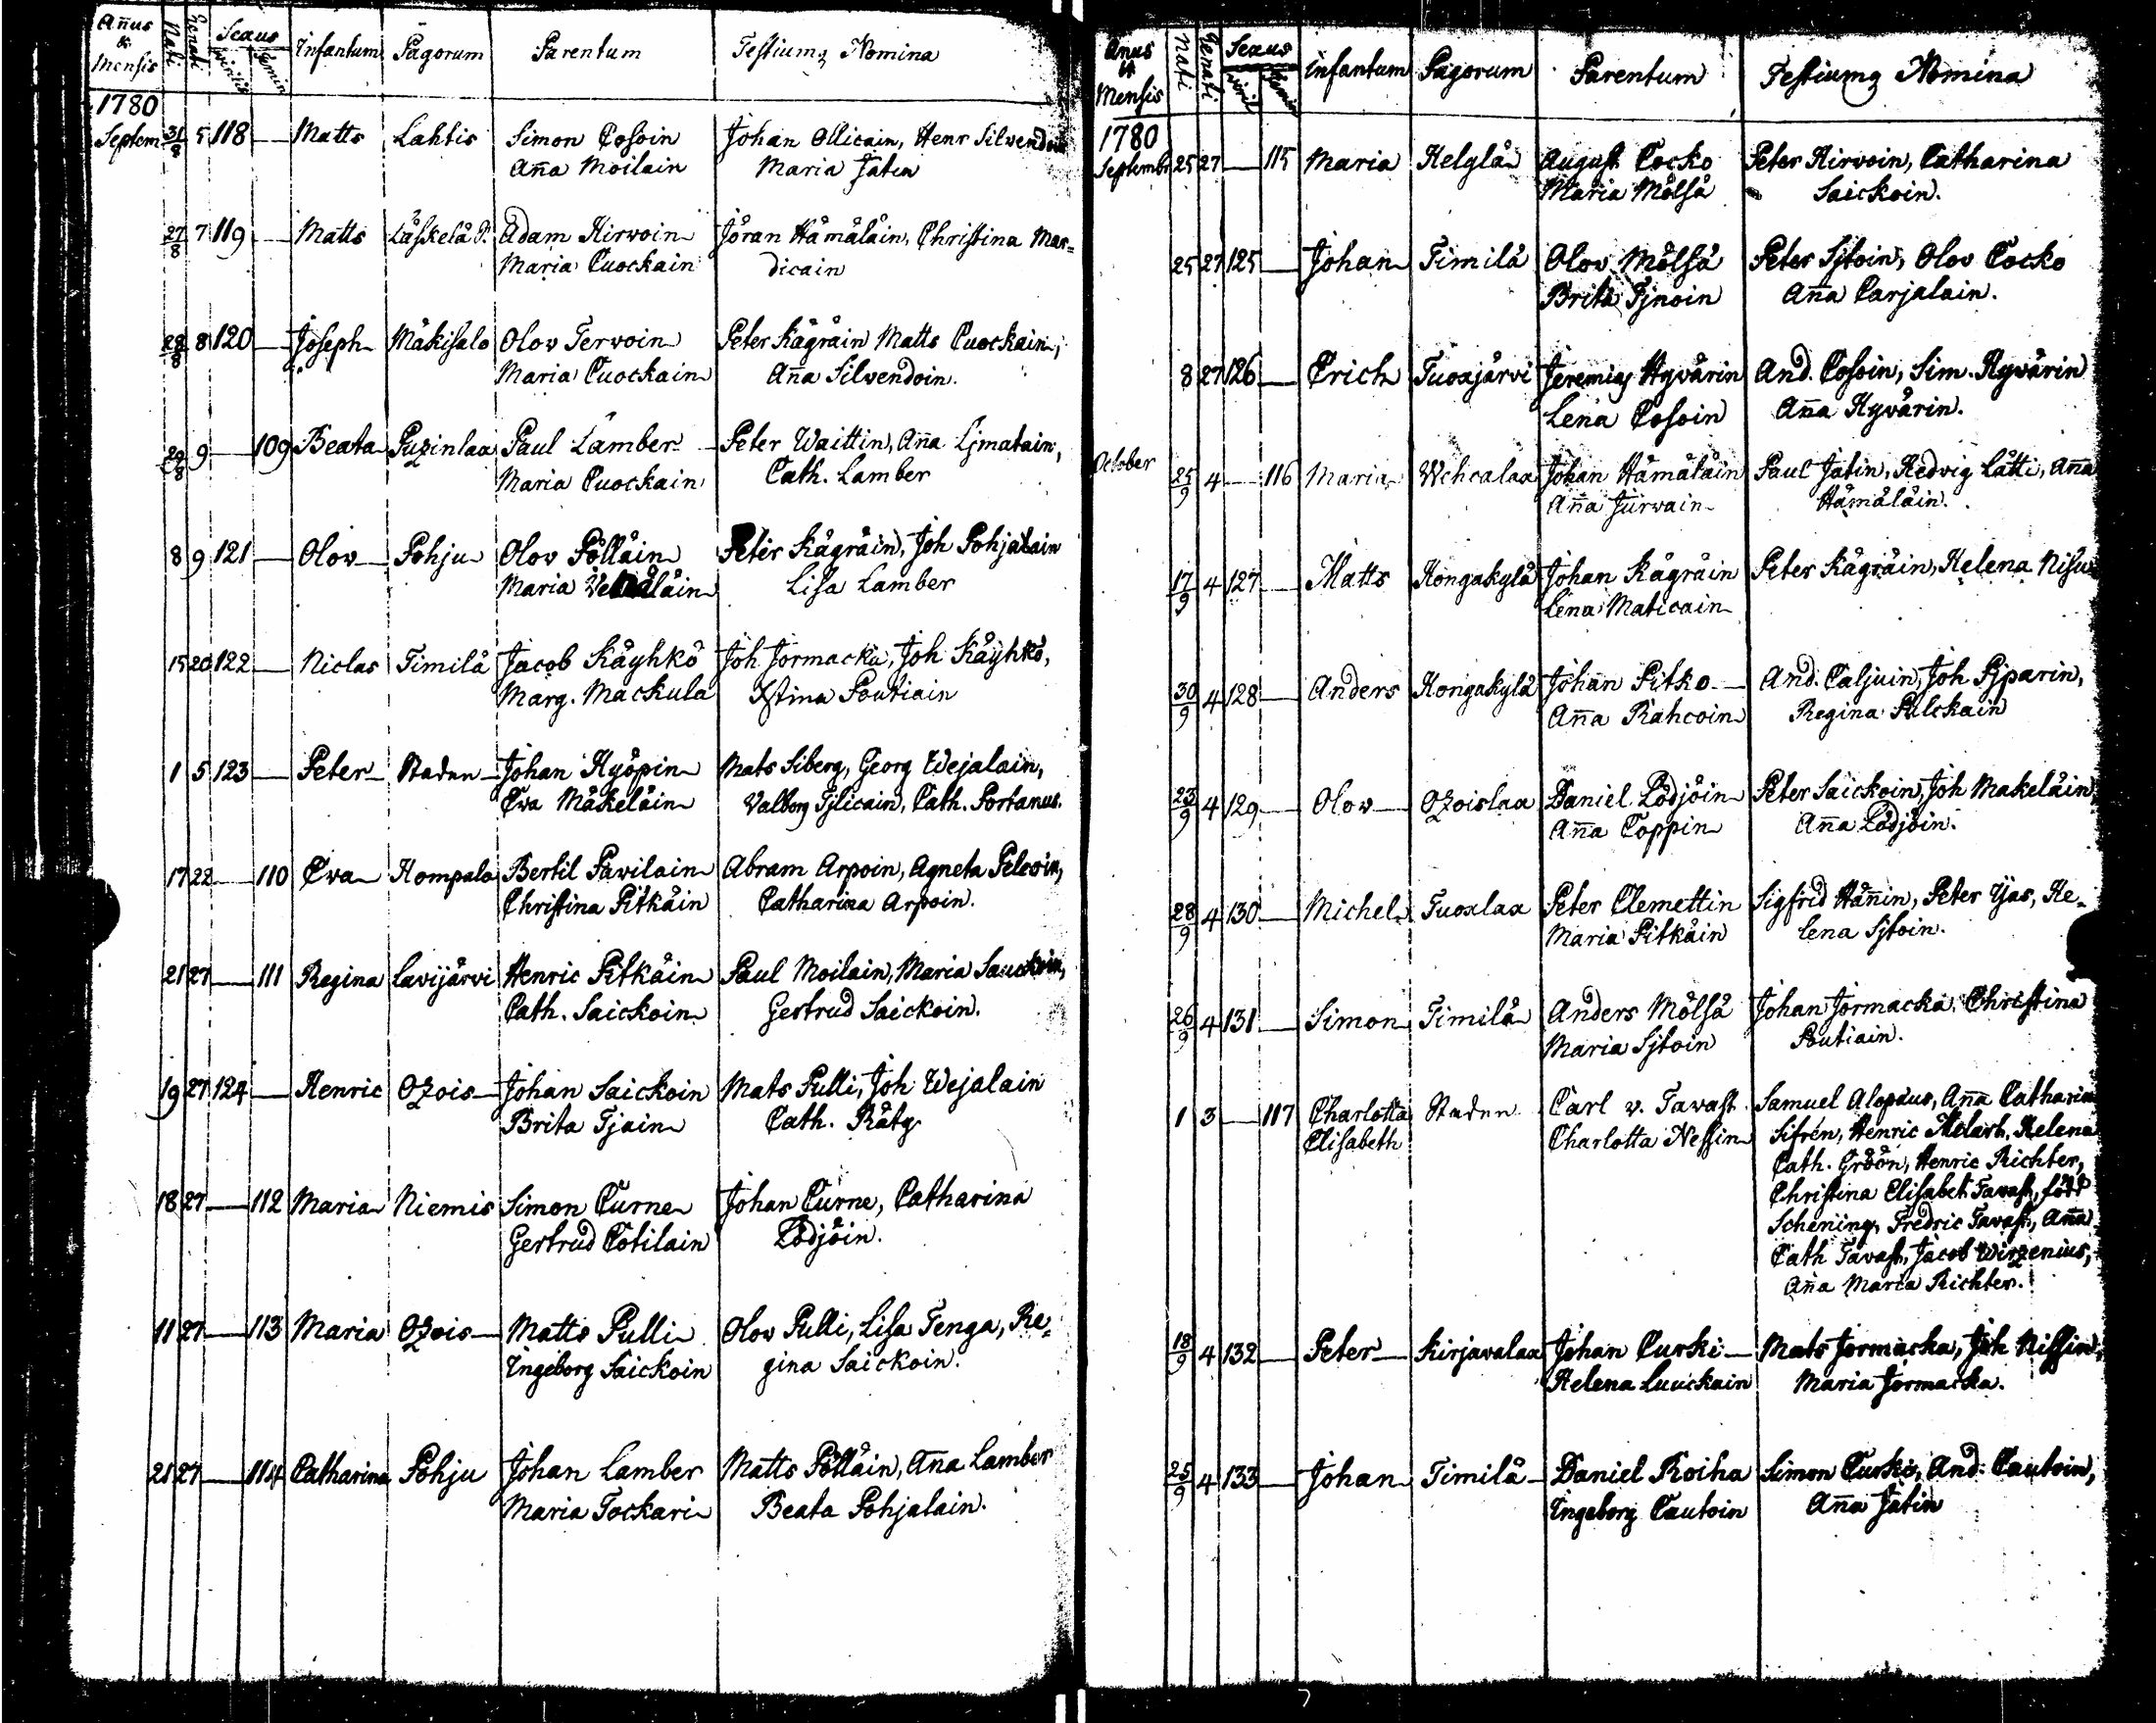 Añus & Mensis Nati Renati Sexus virilis femin Infantum Pagorum Parentum Testiumq Nomina
1780
Septem 31/8 5 118 — Matts Lahtis Simon Cosoin Johan Ollicain, Henr Silvendoin
Aña Moilain Maria Jatin
27/8 7 119 — Matts Läskelä P. Adam Hirvoin Jöran Hämäläin, Christina Mar=
Maria Cuockain dicain
28/8 8 120 — Joseph Mäkisalo Olov Tervoin Peter Kägräin Matts Cuockain,
Maria Cuockain Aña Silvendoin.
29/8 9 — 109 Beata Puzinlax Paul Lamber Peter Waittin, Aña Ljmatain,
Maria Cuockain Cath. Lamber
8 9 121 — Olov Pohju Olov Pölläin Peter Kägräin, Joh Pohjalain
Maria Lisa Lamber
15 20 122 — Niclas Timilä Jacob Käyhkö Joh Jormacka, Joh Käyhkö,
Marg. Mackula Xstina Poutiain
1 5 123 — Peter Staden Johan Hyöpin Mats Siberg, Georg Wejalain,
Eva Mäkeläin Valborg Tjlicain, Cath. Portanus.
17 22 — 110 Eva Hompala Bertil Pavilain Abram Arpoin, Agneta Pelcoin,
Christina Pitkäin Catharina Arpoin.
21 27 — 111 Regina Lavijärvi Henric Pitkäin Paul Moilain, Maria
Cath. Saickoin Gertrud Saickoin.
19 27 124 — Henric Ozois Johan Saickoin Mats Pulli, Joh Wejalain
Brita Tjain Cath. Räty
18 27 — 112 Maria Niemis Simon Curne Johan Curne, Catharina
Gertrud Cotilain Lödjöin.
11 27 — 113 Maria Ozois Matts Pulli Olov Pulli, Lisa Tenga, Re=
Ingeborg Saickoin gina Saickoin.
21 27 — 114 Catharina Pohju Johan Lamber Matts Pölläin, Aña Lamber
Maria Tockari Beata Pohjalain.
Anus & Mensis Nati Renati Sexus viril femin Infantum Pagorum Parentum Testiumq Nomina
1780
Septembr 25 27 — 115 Maria Helylä August Cocko Peter Hirvoin, Catharina
Maria Mölsä Saickoin.
25 27 125 — Johan Timilä Olov Mölsä Peter Sjtoin, Olov Cocko
Brita Tjnoin Aña Carjalain.
8 27 126 — Erich Tuoxjärvi Jeremias Hyvärin And. Cosoin, Sim. Hyvärin
Lena Cosoin Aña Hyvärin.
October 25/9 4 — 116 Maria Wehcalax Johan Hämäläin Paul Jatin, Hedvig Lätti, Aña
Aña Jurvain Hämäläin.
17/9 4 127 — Matts Hongakylä Johan Kägräin Peter Kägräin, Helena Nisu
Lena Maticain
30/9 4 128 — Anders Hongakylä Johan Pitko And. Caljuin, Joh Pjparin,
Aña Rahcoin Regina Pulckain
23/9 4 129 — Olov Ozoislax Daniel Lödjöin Peter Saickoin, Joh Makeläin,
Aña Toppin Aña Lödjöin.
28/9 4 130 — Michel Tuoxlax Peter Clemettin Sigfrid Häñin, Peter Yjas, He=
Maria Pitkäin lena Sjtoin.
26/9 4 131 — Simon Timilä Anders Mölsä Johan Jormacka, Christina
Maria Sjtoin Poutiain.
1 3 — 117 Charlotta Staden Carl v. Tavast Samuel Alopäus, Aña Catharina
Elisabeth Charlotta Nessin Sifrén, Henric Helena
Cath. Gröön, Henric Richter,
Christina Elisabet Tavast, född
Schening, Fredric Tavast, Aña
Cath Tavast, Jacob Wirzenius,
Aña Maria Richter.
18/9 4 132 — Peter Kirjavalax Johan Curki Mats Jormacka, Joh Nissin,
Helena Luuckain Maria Jormacka.
25/9 4 133 — Johan Timilä Daniel Roiha Simon Curki, And. Cautoin,
Ingeborg Cautoin Aña Jatin